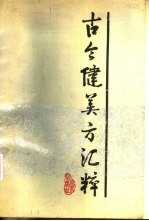 古今健美方汇粹